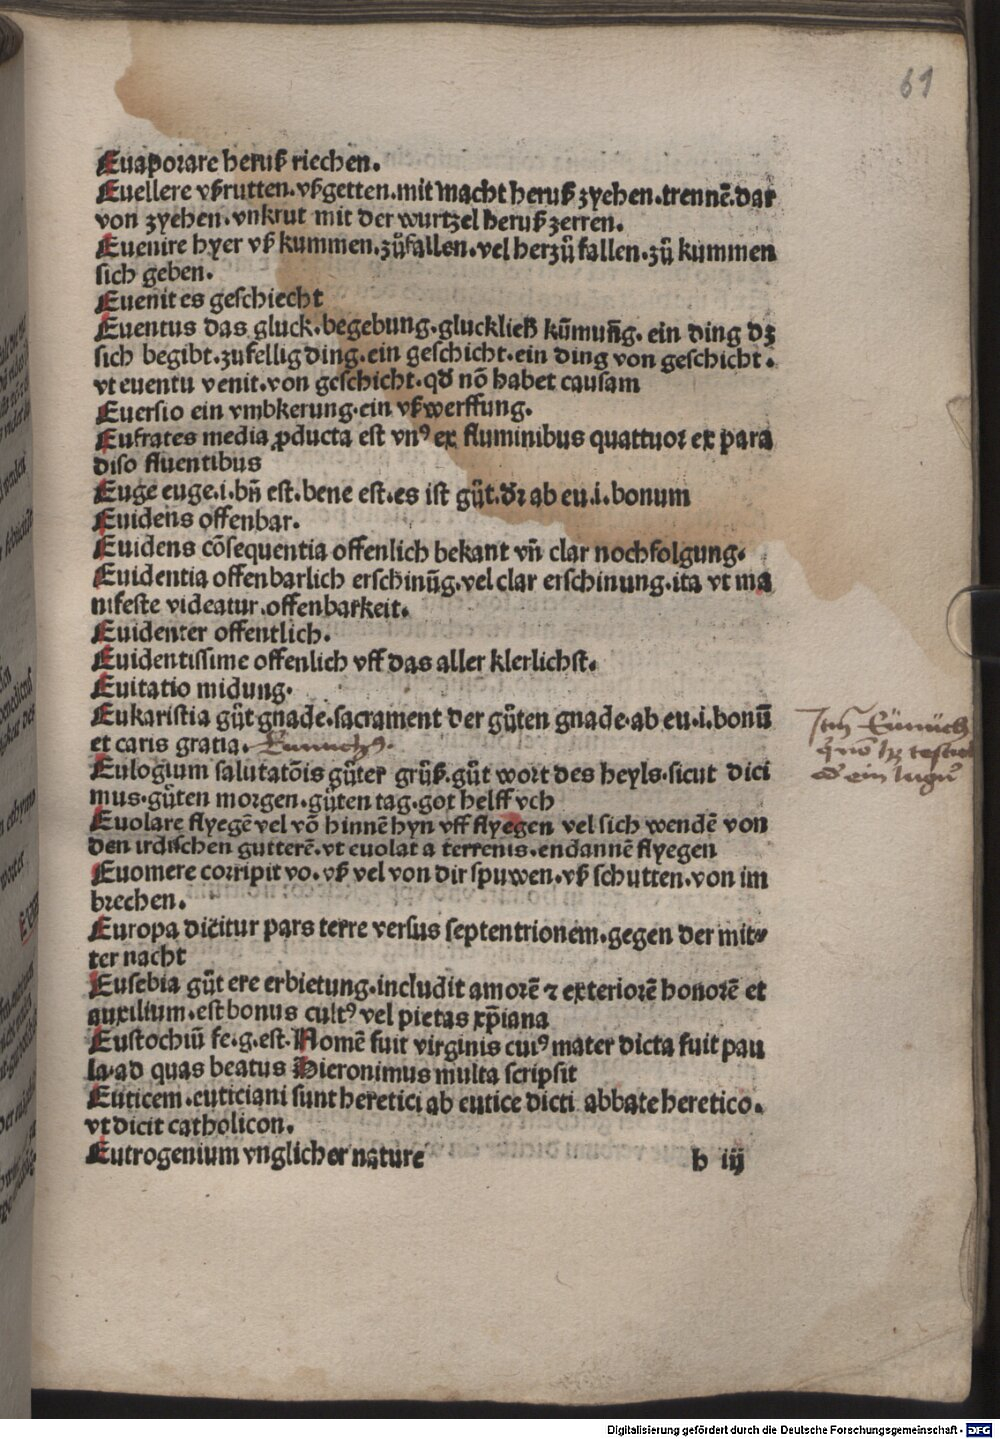 61
Euaporare heruß riechen.
Euellere vßrutten.vßgetten.mit macht heruß zyehen.trennē.dar
von zyehen.vnkrut mit der wurtzel heruß zerren.
Euenire hyer vß kummen.zůfallen.vel herzů fallen.zů kummen
sich geben.
Euenit es geschiecht
Euentus das gluck.begebung.gluckließ kūmuñg. ein ding dʒ
sich begibt.zufellig ding.ein geschicht.ein ding von geschicht.
vt euentu venit.von geschicht.qđ nō habet causam
Euersio ein vmbkerung.ein vßwerffung.
Eufrates media ꝓducta est vnꝰ ex fluminibus quattuor ex para
diso fluentibus
Euge euge.i.bñ est.bene est.es ist gůt.đr ab eu.i.bonum
Euidens offenbar.
Euidens cōsequentia offenlich bekant vñ clar nochfolgung.
Euidentia offenbarlich erschinūg.vel clar erschinung.ita vt ma
nifeste videatur.offenbarkeit.
Euidenter offentlich.
Euidentissime offenlich vff das aller klerlichst.
Euitatio midung.
Eukaristia gůt gnade.sacrament der gůten gnade.ab eu.i.bonū
et caris gratia. Eunuchꝰ.
Jtañ Eünüch
Eulogium salutatōis gůter grůß.gůt wort des heyls.sicut dici
mus.gůten morgen.gůten tag.got helff vch
Euolare flyegē vel vō hinnē hyn vff flyegen vel sich wendē von
den irdischen gutterē.vt euolat a terrenis.endannē flyegen
Euomere corripit vo.vß vel von dir spuwen.vß schutten.von im
brechen.
Europa dicitur pars terre versus septentrionem.gegen der mit⸗
ter nacht
Eusebia gůt ere erbietung.includit amorē ⁊ exteriorē honorē et
auxilium.est bonus cultꝰ vel pietas xp̄iana
Eustochiū fe.g.est.Nomē fuit virginis cuiꝰ mater dicta fuit pau
la.ad quas beatus Hieronimus multa scripsit
Euticem.euticiani sunt heretici ab eutice dicti abbate heretico.
vt dicit catholicon.
Eutrogenium vnglicher nature
h iij
Digitalisierung gefördert durch die Deutsche Forschungsgemeinschaft - DFG